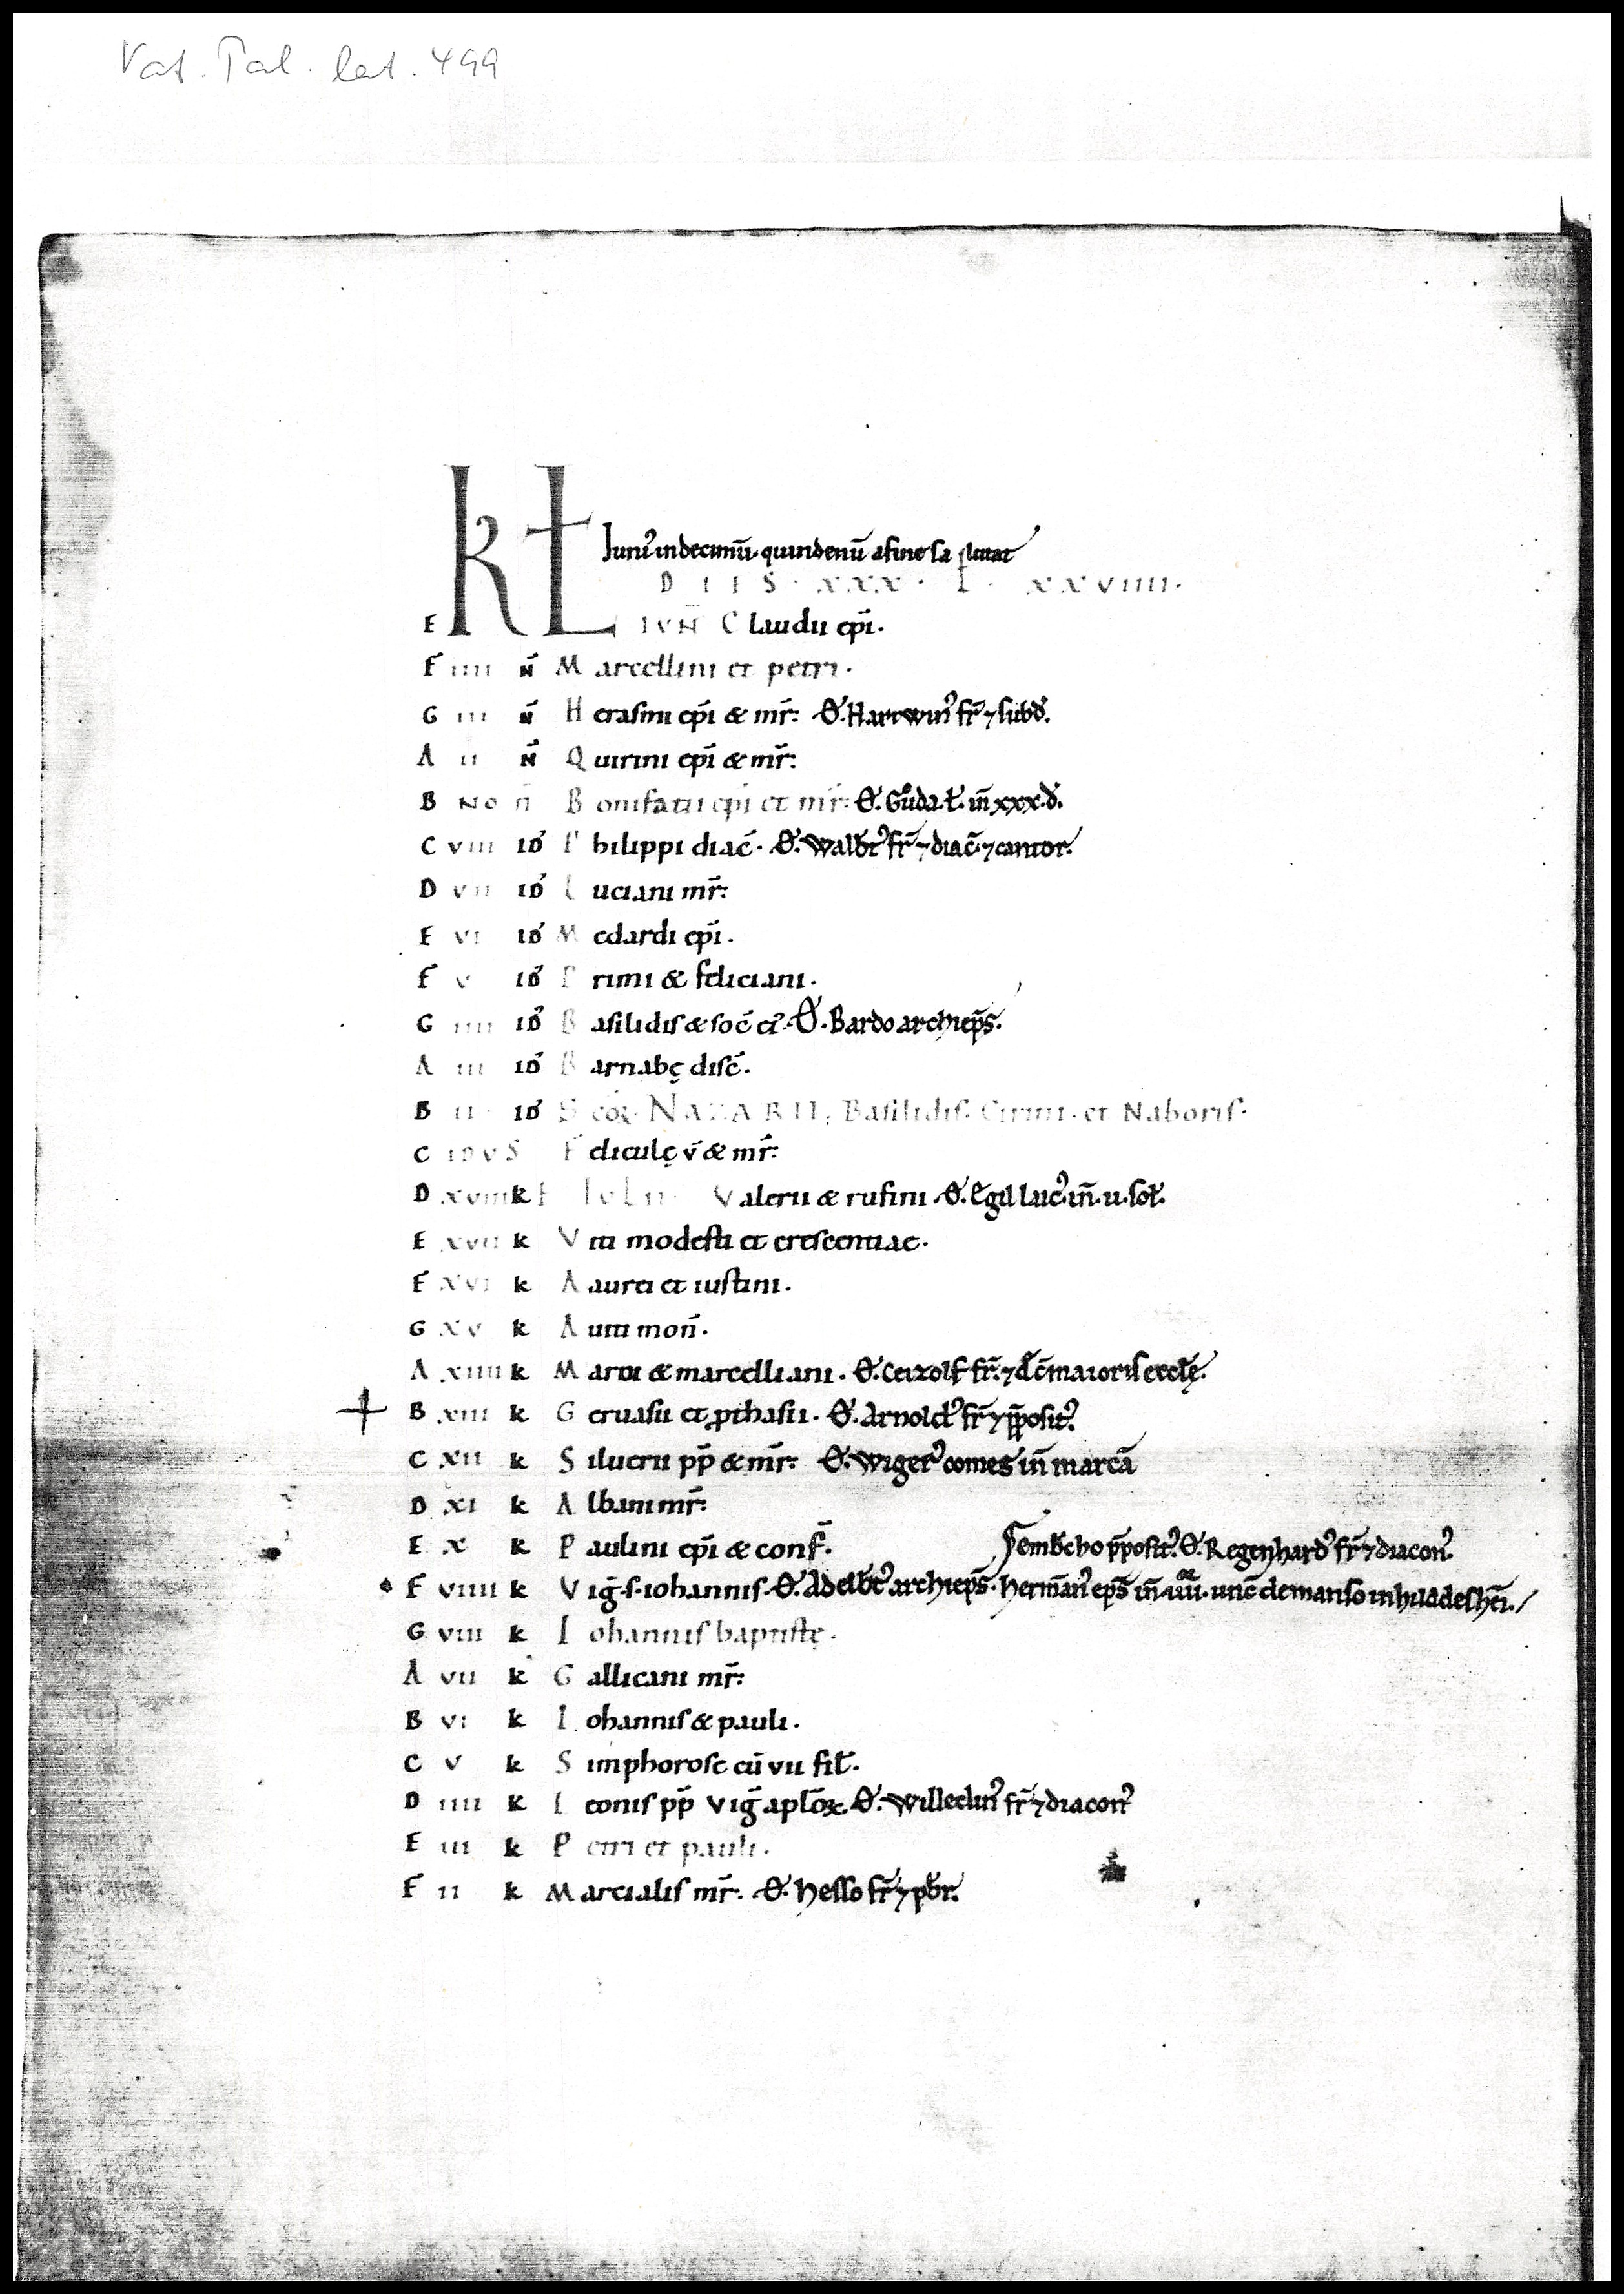 Vat. Pal. lat. 499
KL Iuni᷒ in decimū. quindenū a fine salutat
DIES . XXX . L . XXVIIII .
E IVN̄ Claudii ep̄i .
F IIII N̄ Marcellini et petri .
G III N̄ Herasmi ep̄i & mr̄: Ꝋ. Hartwin᷒ fr̄ ⁊ subd̄.
A II N̄ Quirini ep̄i & mr̄:
B NO N̄ Bonifatii ep̄i et mr̄: Ꝋ. Gůda. ł. in̄ xxx. d̄.
C VIII ID᷒ Philippi diac̄ . Ꝋ. Walb̄t᷒ fr̄ ⁊ diac̄ ⁊ cantor.
D VII ID᷒ Luciani mr̄:
E VI ID᷒ Medardi ep̄i .
F V ID᷒ Primi & feliciani .
G IIII ID᷒ Basilidis & soc̄ ei᷒. Ꝋ. Bardo archiep̄s.
A III ID᷒ Barnabę disc̄ .
B II ID᷒ Sc̄oꝝ NAZARII; Basilidis. Cirini. et Naboris.
C IDUS Fediculę v̄ & mr̄:
D XVIII KL IULII . Valerii & rufini . Ꝋ. Egil laic᷒. in̄. u. soł.
E XVII K Viti modesti et crescentiae .
F XVI K Aaurei et iustini .
G XV K Auiti mon̄ .
A XIIII K Marci & marcelliani . Ꝋ. Ceizolf fr̄. ⁊ dēc̄ maioris eccłę.
B XIII K Geruasii et ꝓthasii . Ꝋ. Arnold᷒ fr̄ ⁊ p̄posit᷒.
C XII K Siluerii pp̄ & mr̄: Ꝋ. Wiger᷒ comes in̄ marcā
D XI K Albani mr̄:
E X K Paulini ep̄i & conf̄. Sembcho p̄posit᷒. Ꝋ. Regenhard᷒ fr̄ ⁊ diacon᷒.
F VIIII K Vig̅. s. iohannis . Ꝋ. Adelb̄t᷒ archiep̄s . herman̄᷒ ep̄s in̄ unc̄ de manso in huddeshēi.
G VIII K Iohannis baptistę .
A VII K Gallicani mr̄:
B VI K Iohannis & pauli .
C V K Simphorose cū vii fił.
D IIII K Leonis pp̄ Vig̅ apl̄oꝝ Ꝋ. Willeclin᷒ fr̄ ⁊ diacon᷒
E III K Petri et pauli .
F II K Marcialis mr̄: Ꝋ. Hesso fr̄ ⁊ pb̄r.